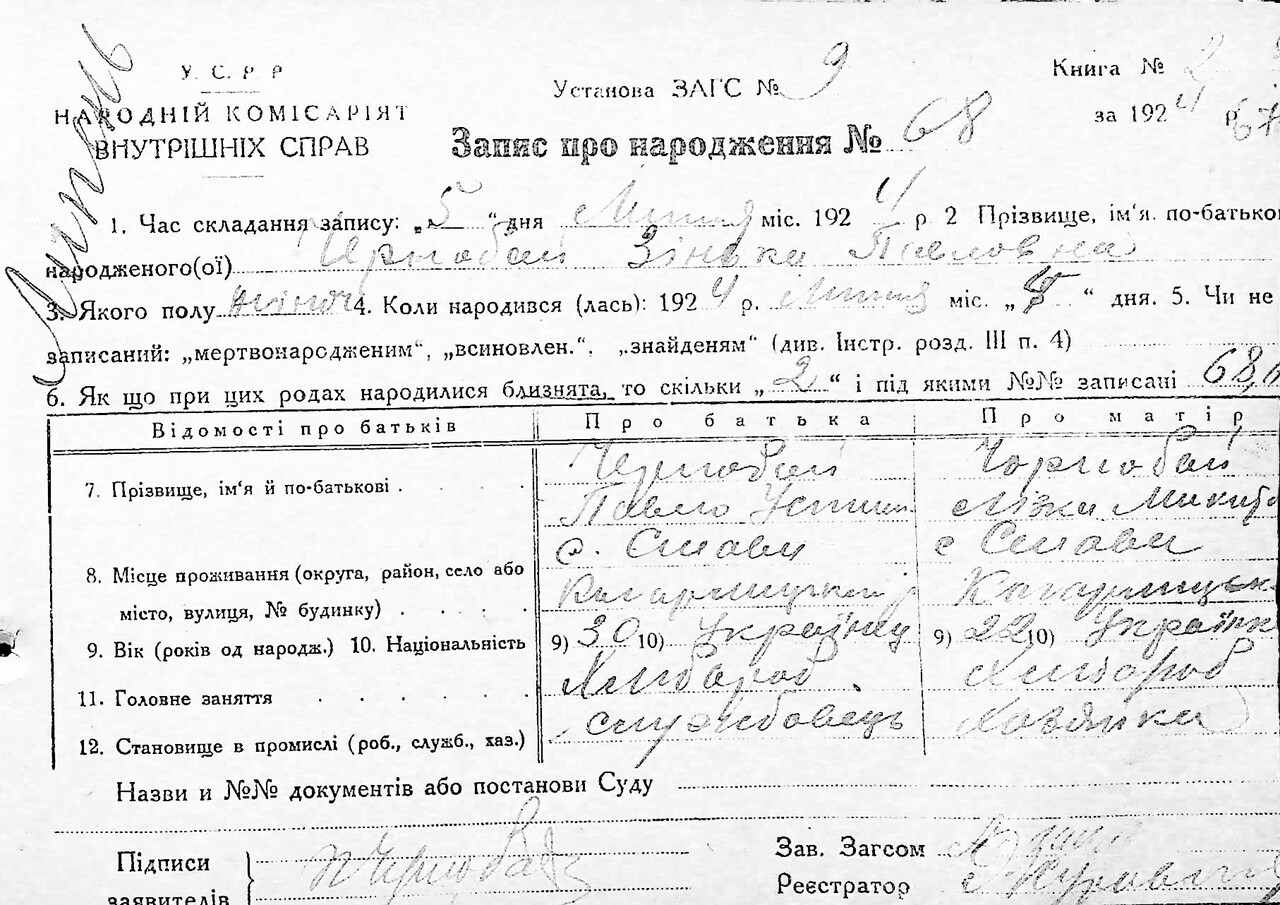 Липень
У. С. Р. Р
НАРОДНІЙ КОМІСАРІЯТ
ВНУТРІШНІХ СПРАВ
Установа ЗАГС № 9
Запис про народження № 68
Книга № 2
за 1924 р 67
1. Час складання запису: „5 “ дня Липня міс. 1924 р 2 Прізвище, ім'я. по-батькові
народженого(ої) Чорнобай Зінька Павловна
3. Якого полу жіноч 4. Коли народився (лась): 1924 р. Липня міс. „ “ дня. 5. Чи не
записаний: „мертвонародженим“, „всиновлен.“, „знайденям“ (див. Інстр. розд. III п. 4)
6. Як що при цих родах народилися близнята, то скільки „ 2 “ і під якими №№ записані 68,
Відомості про батьків Про батька Про матір
7. Прізвище, ім'я й по-батькові . . . . Чернобай Чорнобай
Павло Устим Лізка Микит
с. Слави с Слави
8. Місце проживання (округа, район, село або
місто, вулиця, № будинку) . . . . Кагарлицький р Кагарлицьк
9. Вік (років од народж.) 10. Національність 9) 30 10) Українец 9) 22 10) Українк
11. Головне заняття . . . . Хлибороб Хлибороб
12. Становище в промислі (роб., служб., хаз.) службовець Хозяйка
Назви и №№ документів або постанови Суду
Підписи П Чернобай Зав. Загсом
заявителів Реєстратор